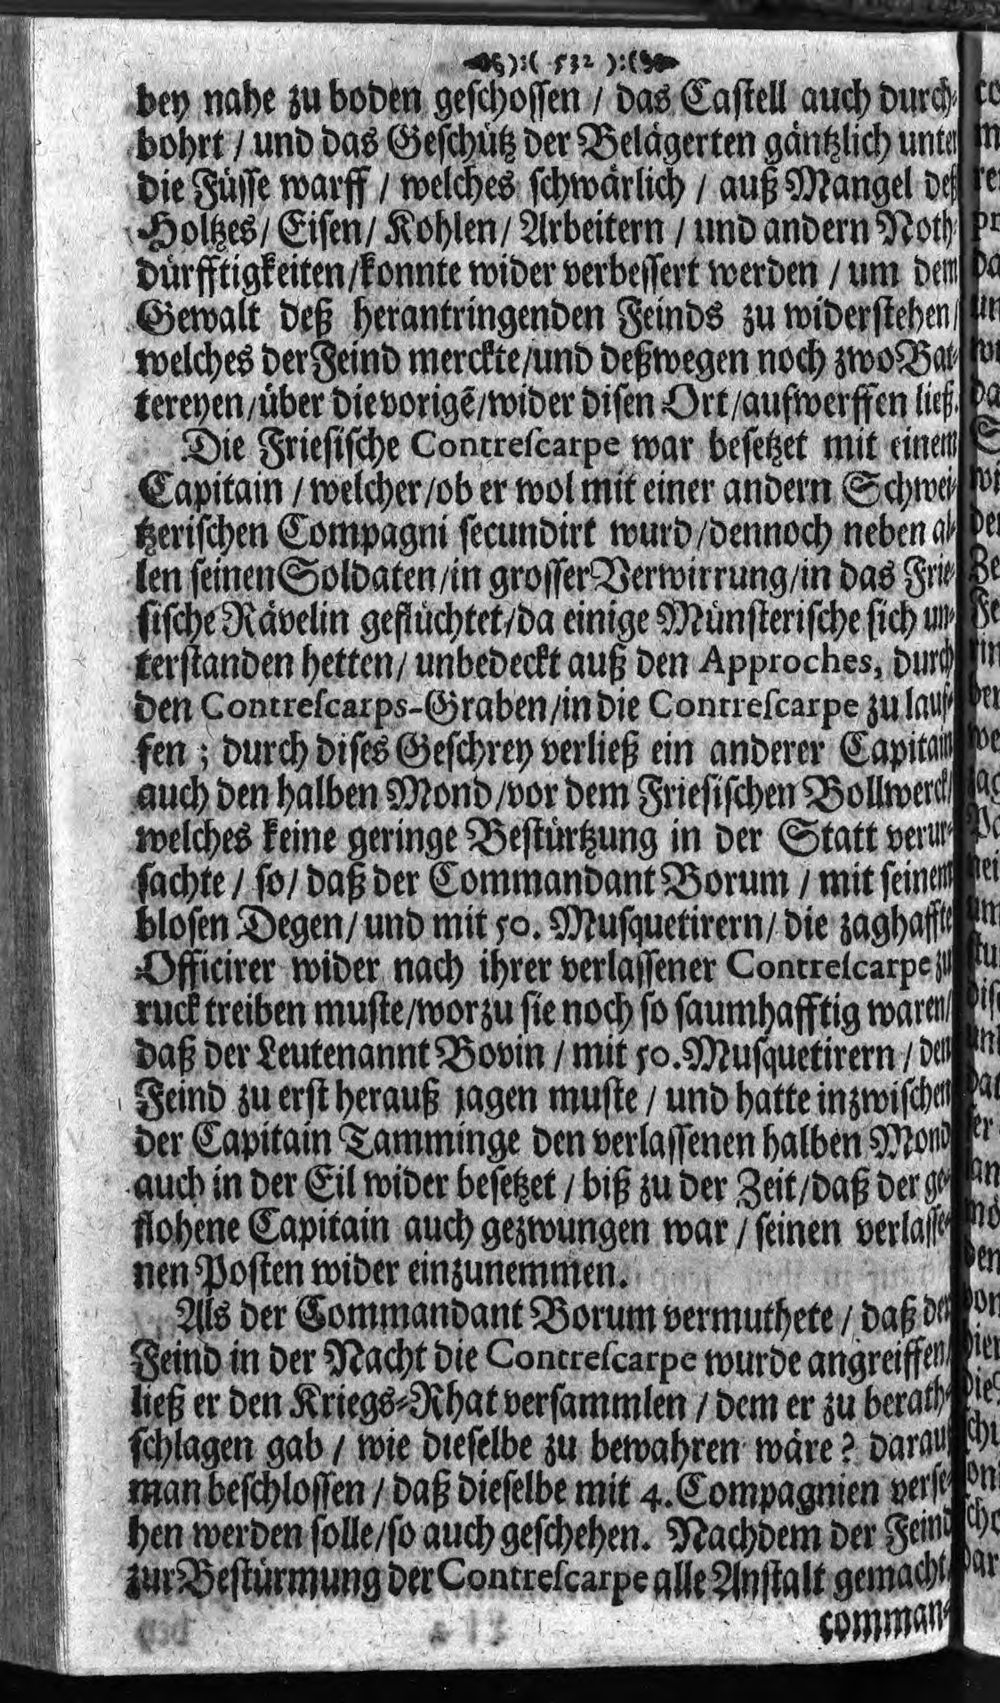 ):( 532 ):(
bey nahe zu boden geschossen / das Castell auch durch-
bohrt / und das Geschütz der Belägerten gäntzlich unter
die Füsse warff / welches schwärlich / auß Mangel deß
Holtzes / Eisen / Kohlen / Arbeitern / und andern Noth-
dürfftigkeiten / konnte wider verbessert werden / um dem
Gewalt deß herantringenden Feinds zu widerstehen /
welches der Feind merckte / und deßwegen noch zwo Bat-
tereyen / über die vorigẽ / wider disen Ort / aufwerffen ließ.
Die Friesische Contrescarpe war besetzet mit einem
Capitain / welcher / ob er wol mit einer andern Schwei-
tzerischen Compagni secundirt wurd / dennoch neben al-
len seinen Soldaten / in grosser Verwirrung / in das Frie-
sische Rävelin geflüchtet / da einige Münsterische sich un-
terstanden hetten / unbedeckt auß den Approches, durch
den Contrescarps-Graben / in die Contrescarpe zu lauf-
fen ; durch dises Geschrey verließ ein anderer Capitain
auch den halben Mond / vor dem Friesischen Bollwerck /
welches keine geringe Bestürtzung in der Statt verur-
sachte / so / daß der Commandant Borum / mit seinem
blosen Degen / und mit 50. Musquetirern / die zaghaffte
Officirer wider nach ihrer verlassener Contrescarpe zu
ruck treiben muste / worzu sie noch so saumhafftig waren /
daß der Leutenannt Bovin / mit 50. Musquetirern / den
Feind zu erst herauß jagen muste / und hatte inzwischen
der Capitain Tamminge den verlassenen halben Mond
auch in der Eil wider besetzet / biß zu der Zeit / daß der ge-
flohene Capitain auch gezwungen war / seinen verlasse-
nen Posten wider einzunemmen.
Als der Commandant Borum vermuthete / daß der
Feind in der Nacht die Contrescarpe wurde angreiffen /
ließ er den Kriegs-Rhat versammlen / dem er zu berath-
schlagen gab / wie dieselbe zu bewahren wäre? darauf
man beschlossen / daß dieselbe mit 4. Compagnien verse-
hen werden solle / so auch geschehen. Nachdem der Feind
zur Bestürmung der Contrescarpe alle Anstalt gemacht /
comman-